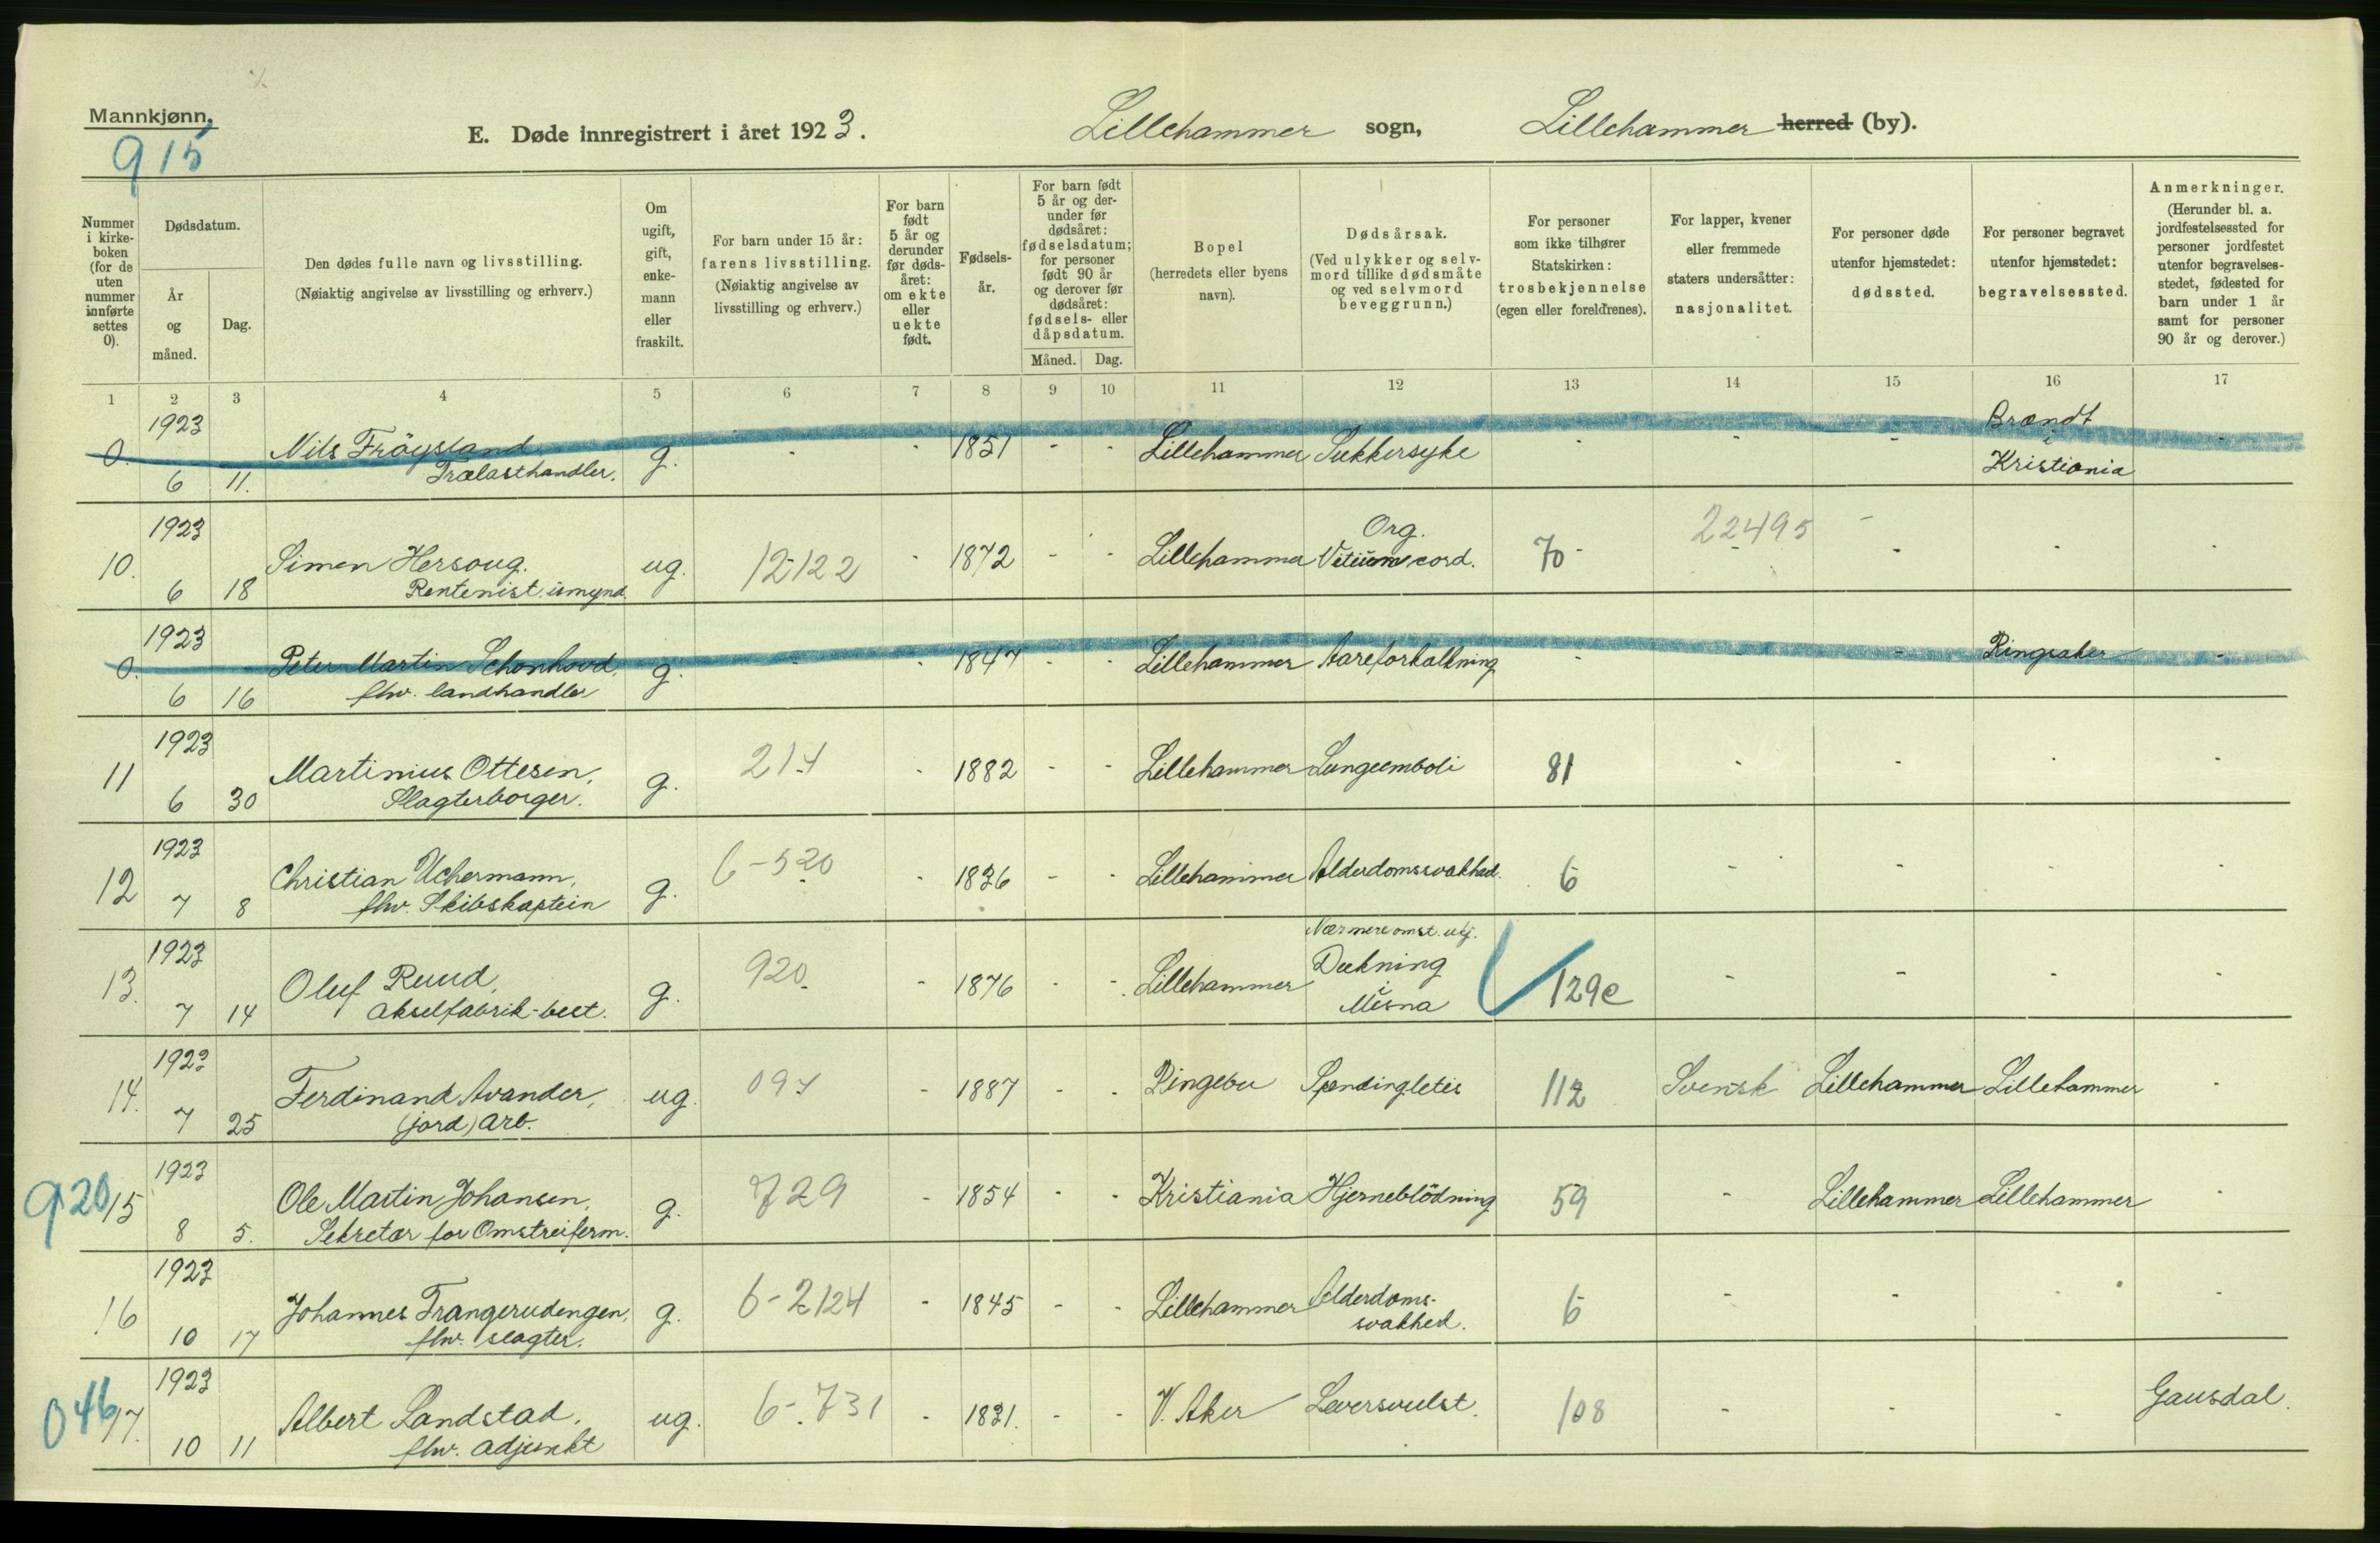 Mannkjønn,
915
E. Døde innregistrert i året 1923.
Lillehammer sogn,
Lillehammer herred (by).
Nummer i kirke-boken (for de uten nummer innførte settes 0).
Dødsdatum.
År og måned.
Dag.
Den dødes fulle navn og livsstilling.
(Nøiaktig angivelse av livsstilling og erhverv.)
Om ugift, gift, enke-mann eller fraskilt.
For barn under 15 år: farens livsstilling.
(Nøiaktig angivelse av livsstilling og erhverv.)
For barn født 5 år og derunder før døds-året: om ekte eller uekte født.
Fødsels-år.
For barn født 5 år og der-under før dødsåret: fødselsdatum; for personer født 90 år og derover før dødsåret: fødsels- eller dåpsdatum.
Måned.
Dag.
Bopel
(herredets eller byens navn).
Dødsårsak.
(Ved ulykker og selv-mord tillike dødsmåte og ved selvmord beveggrunn.)
For personer som ikke tilhører Statskirken: trosbekjennelse (egen eller foreldrenes).
For lapper, kvener eller fremmede staters undersåtter: nasjonalitet.
For personer døde utenfor hjemstedet: dødssted.
For personer begravet utenfor hjemstedet: begravelsessted.
Anmerkninger.
(Herunder bl. a. jordfestelsessted for personer jordfestet utenfor begravelses-stedet, fødested for barn under 1 år samt for personer 90 år og derover.)
1 2 3 4 5 6 7 8 9 10 11 12 13 14 15 16 17
1923 Brændt
0. Nils Fröysland g. - - 1851 - - Lillehammer Sukkersyke - - - i -
6 11. Trælasthandler. Kristiania
1923 Org. 22495 -
10. Simen Hersoug. ug. 12-122 - 1872 - - Lillehammer Vitium cord. 70 - - - - -
6 18 Rentenist. umynd.
1923
0. Peter Martin Schonhovd, g. - - 1847 - - Lillehammer Aareforkalkning - - - Ringsaker -
6 16 fhv. landhandler
1923
11 Martinius Ottesen, g. 214 - 1882 - - Lillehammer Lungeemboli 81 - - - -
6 30 Slagterborger.
1923
12 Christian Uchermann, g. 6-520 - 1836 - - Lillehammer Alderdomssvakhed. 6 - - - -
7 8 fhv. Skibskaptein
1923 Nærmere omst. utj.
13. Oluf Ruud, g. 920. - 1876 - - Lillehammer Dukning 129c - - - -
i
7 14 akselfabrik-best. Mesna
1923
14. Ferdinand Avander, ug. 094 - 1887 - - Ringebu Spondingletis 112 Svensk Lillehammer Lillehammer -
7 25 (jord) arb.
1923
920 15 Ole Martin Johansen, g. 729 - 1854 - - Kristiania Hjerneblödning 59 - Lillehammer Lillehammer -
8 5. Sekretær for Omstreiferm.
1923
16 Johannes Trangerudengen, g. 6-2124 - 1845 - - Lillehammer Alderdoms- 6 - - - -
10 17 fhv. slagter. svakhed.
1923
046 17. Albert Landstad. ug. 6-731 - 1831. - - V. Aker Leversvulst. 108 - - - Gausdal.
10 11 fhv. adjunkt